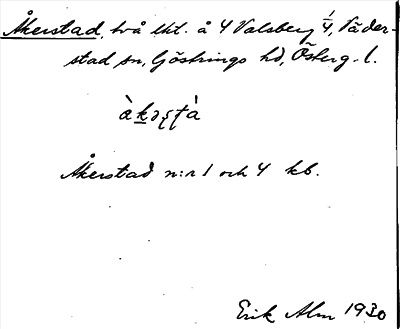 Åkerstad, två lht. å 4 Valsberg 1/4, Väder-
stad sn, Göstrings hd, Österg. l.
Åkerstad n:r 1 och 4 kb.
Erik Alm 1930